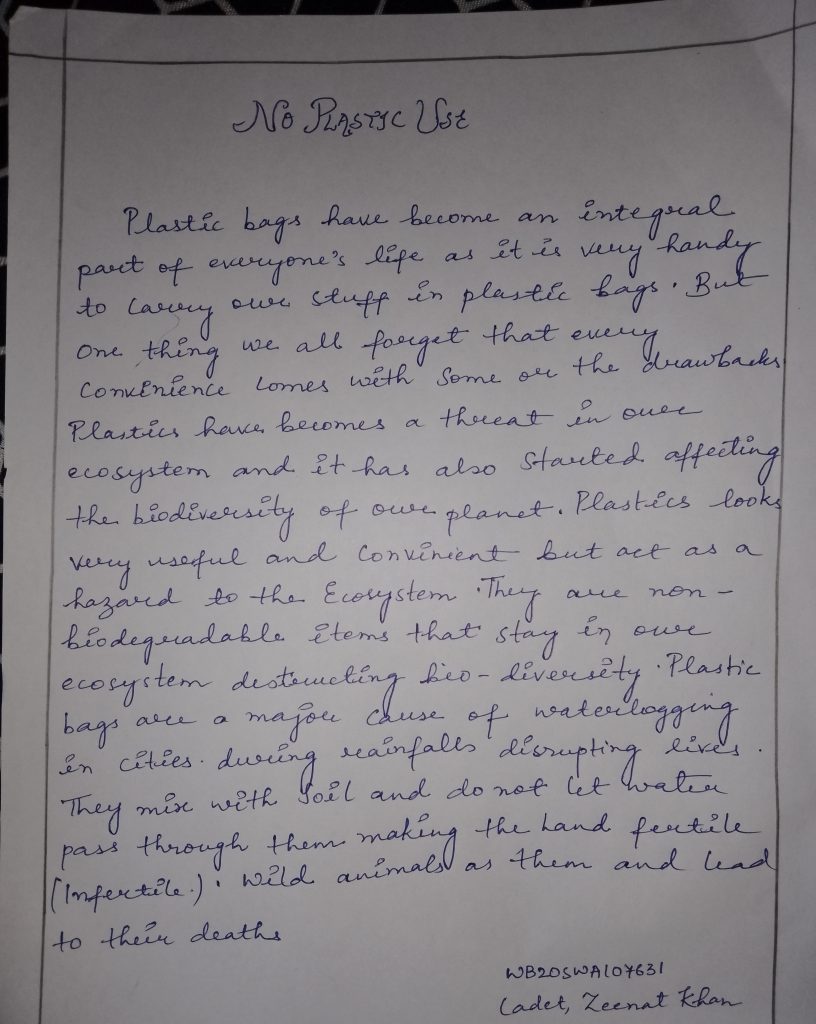 No PLASTIC USE
Plastic bags have become an integral
part of everyone's life as it is very handy
to carry our stuff in plastic bags. But
one thing we all forget that every
convenience comes with some or the drawbacks
Plastics have becomes a threat in our
ecosystem and it has also started affecting
the biodiversity of our planet. Plastics looks
very useful and convinient but act as a
hazard to the Ecosystem. They are non-
biodegradable items that stay in our
ecosystem destructing bio-diversity. Plastic
bags are a major cause of waterlogging
in cities. during rainfalls disrupting lives.
They mix with soil and do not let water
pass through them making the land fertile
(Infertile.). Wild animals as them and lead
to their deaths
WB20SWA107631
Cadet, Zeenat Khan